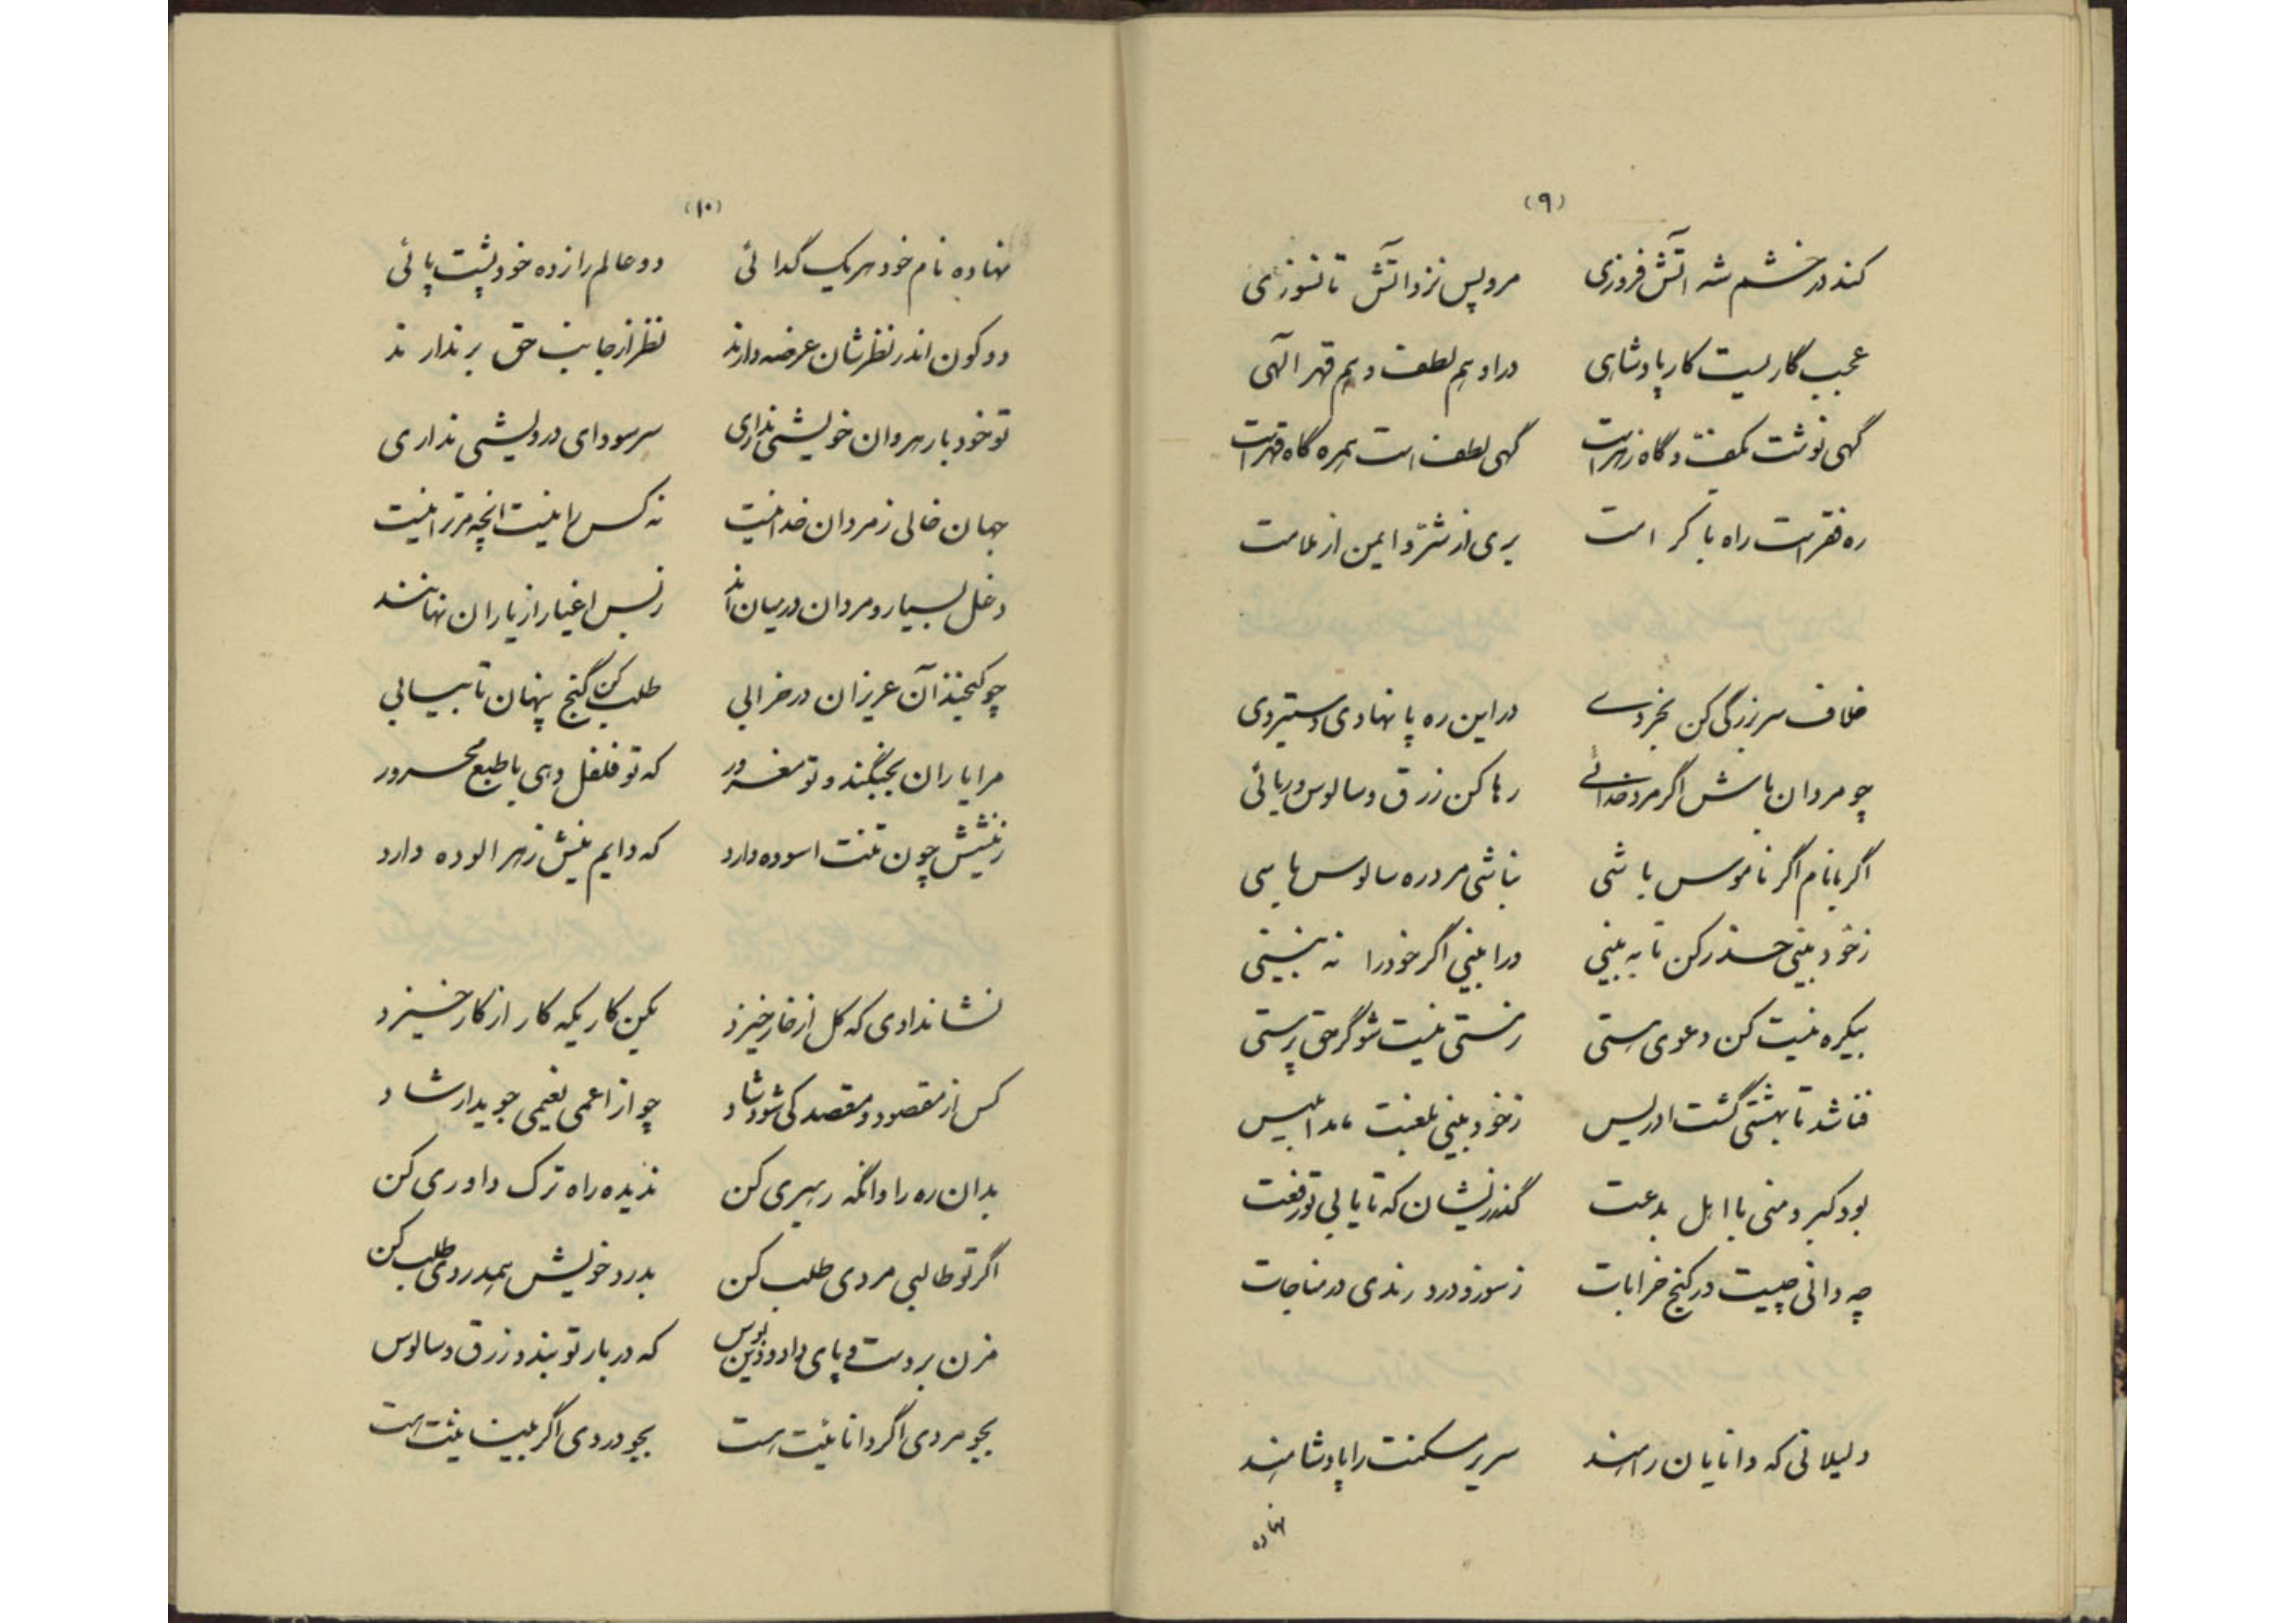 (۹)
کند در خشم شه اتش فروزی مرو پس نزد اتش تا نسوزی
عجب کاریست کار پادشاهی در او هم لطف و هم قهر الهی
گهی نوشت بکف و گاه زهر است گهی لطف است همره گاه قهر است
ره فقر است راه با کرامت بری از شر و ایمن از ملامت
خلاف سر بزرگی کن بخردی در این ره پا نهادی دستبردی
چو مردان باش اگر مرد خدائی رها کن زرق و سالوس و ریائی
اگر با نام اگر ناموس باشی نباشی مرد ره سالوس باشی
زخود بینی حذر کن تا به بینی ورا بینی اگر خود را نه بینی
بیکره نیست کن دعوی هستی زهستی نیست شو گر حق پرستی
فنا شد تا بهشتی گشت ادریس زخود بینی بلعنت ماند ابلیس
بود کبر و منی با اهل بدعت گذر زیشان که تا یابی تو رفعت
چه دانی چیست در کنج خرابات زسوز و درد رندی در مناجات
دلیلانی که دانایان راهند سریر مسکنت را پادشاهند
نهاده
(۱۰)
نهاده نام خود هر یک گدائی دو عالم را زده خود پشت پائی
دو کون اندر نظرشان عرضه دارند نظر از جانب حق بر ندارند
تو خود با رهروان خویشی نداری سر سودای درویشی نداری
جهان خالی زمردان خدا نیست نه کس را نیست انچه مر ترا نیست
دغل بسیار و مردان در میان‌اند زبس اغیار از یاران نهانند
چو گنجند آن عزیزان در خرابی طلب کن گنج پنهان تا بیابی
مرا یاران بجنگند و تو مغرور که تو فلفل دهی با طبع محرور
زنیشش چون تنت اسوده دارد که دایم نیش زهر الوده دارد
نشاندادی که گل از خار خیزد بکن کاریکه کار از کار خیزد
کس از مقصود و مقصد کی شود شاد چو از اعمی نعیمی جوید ارشاد
بدان ره را وانگه رهبری کن ندیده راه ترک داوری کن
اگر تو طالبی مردی طلب کن بدرد خویش همدردی طلب کن
مزن بر دست و پای داد و دین بوس که در بار تو بندد زرق و سالوس
بجو مردی اگر دانائیت هست بجو دردی اگر بینائیت هست